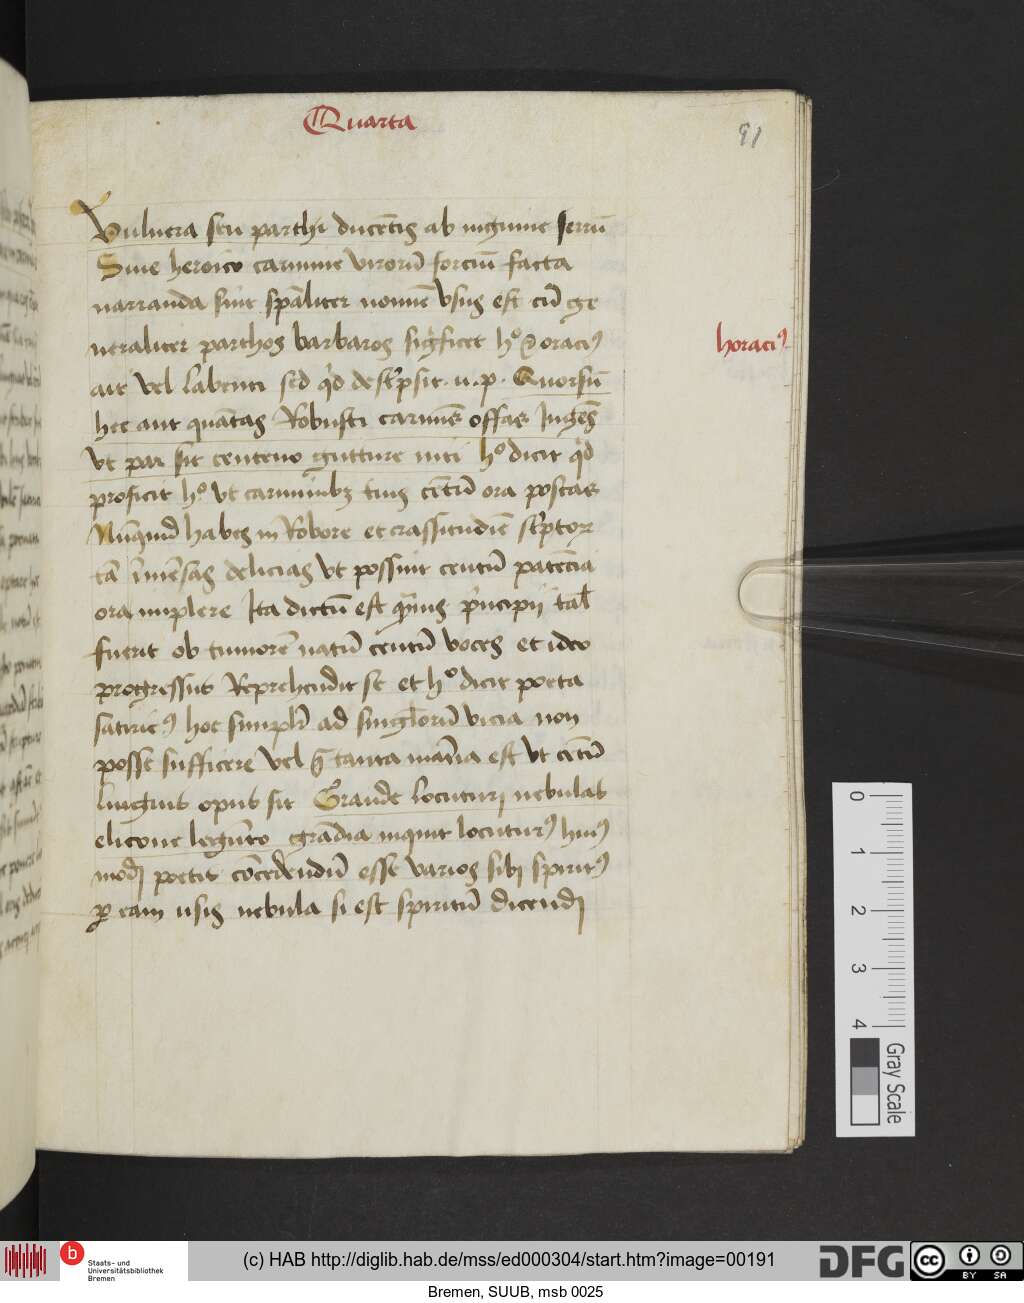 Quarta
91
Vulnera seu parthi ducẽtis ab inguine ferrũ
Siue heroico carmine virorũ forciũ facta
narranda sint spãliter nomẽ vsus est cũ ge
neraliter parthos barbaros sigficet hº Oracius
horacius
ait vel labenti sed qd descpsit. u. p. Quorsũ
hec aut quãtas Robusti carminis offas Ingeris
vt par sit centeno gutture niti hº dicit qd
proficit hº vt carminibus tuis cẽtũ ora poscas
Nũquid habes in Robore et crassitudiẽ scptor
tã imẽsas delicias vt possint centũ patẽcia
ora implere Ita dictũ est principii tal
fuerit ob tumorẽ natũ centũ voces et ideo
progressus Reprehendit se et hº dicit poeta
satiricus hoc simplr ad singlorũ vicia non
posse sufficere vel tanta maĩa est vt cẽtũ
linguis opus sit Grande locuturi nebulas
elicone legũto grãdia inquit locuturus huius
modi poetis cõcedendũ esse varios sibi spiritus
per eam usis nebula si est spirituũ dicendi
0
1
2
3
4
Gray Scale
b Staats- und
Universitätsbibliothek
Bremen
(c) HAB http://diglib.hab.de/mss/ed000304/start.htm?image=00191
DFG
cc
BY SA
Bremen, SUUB, msb 0025